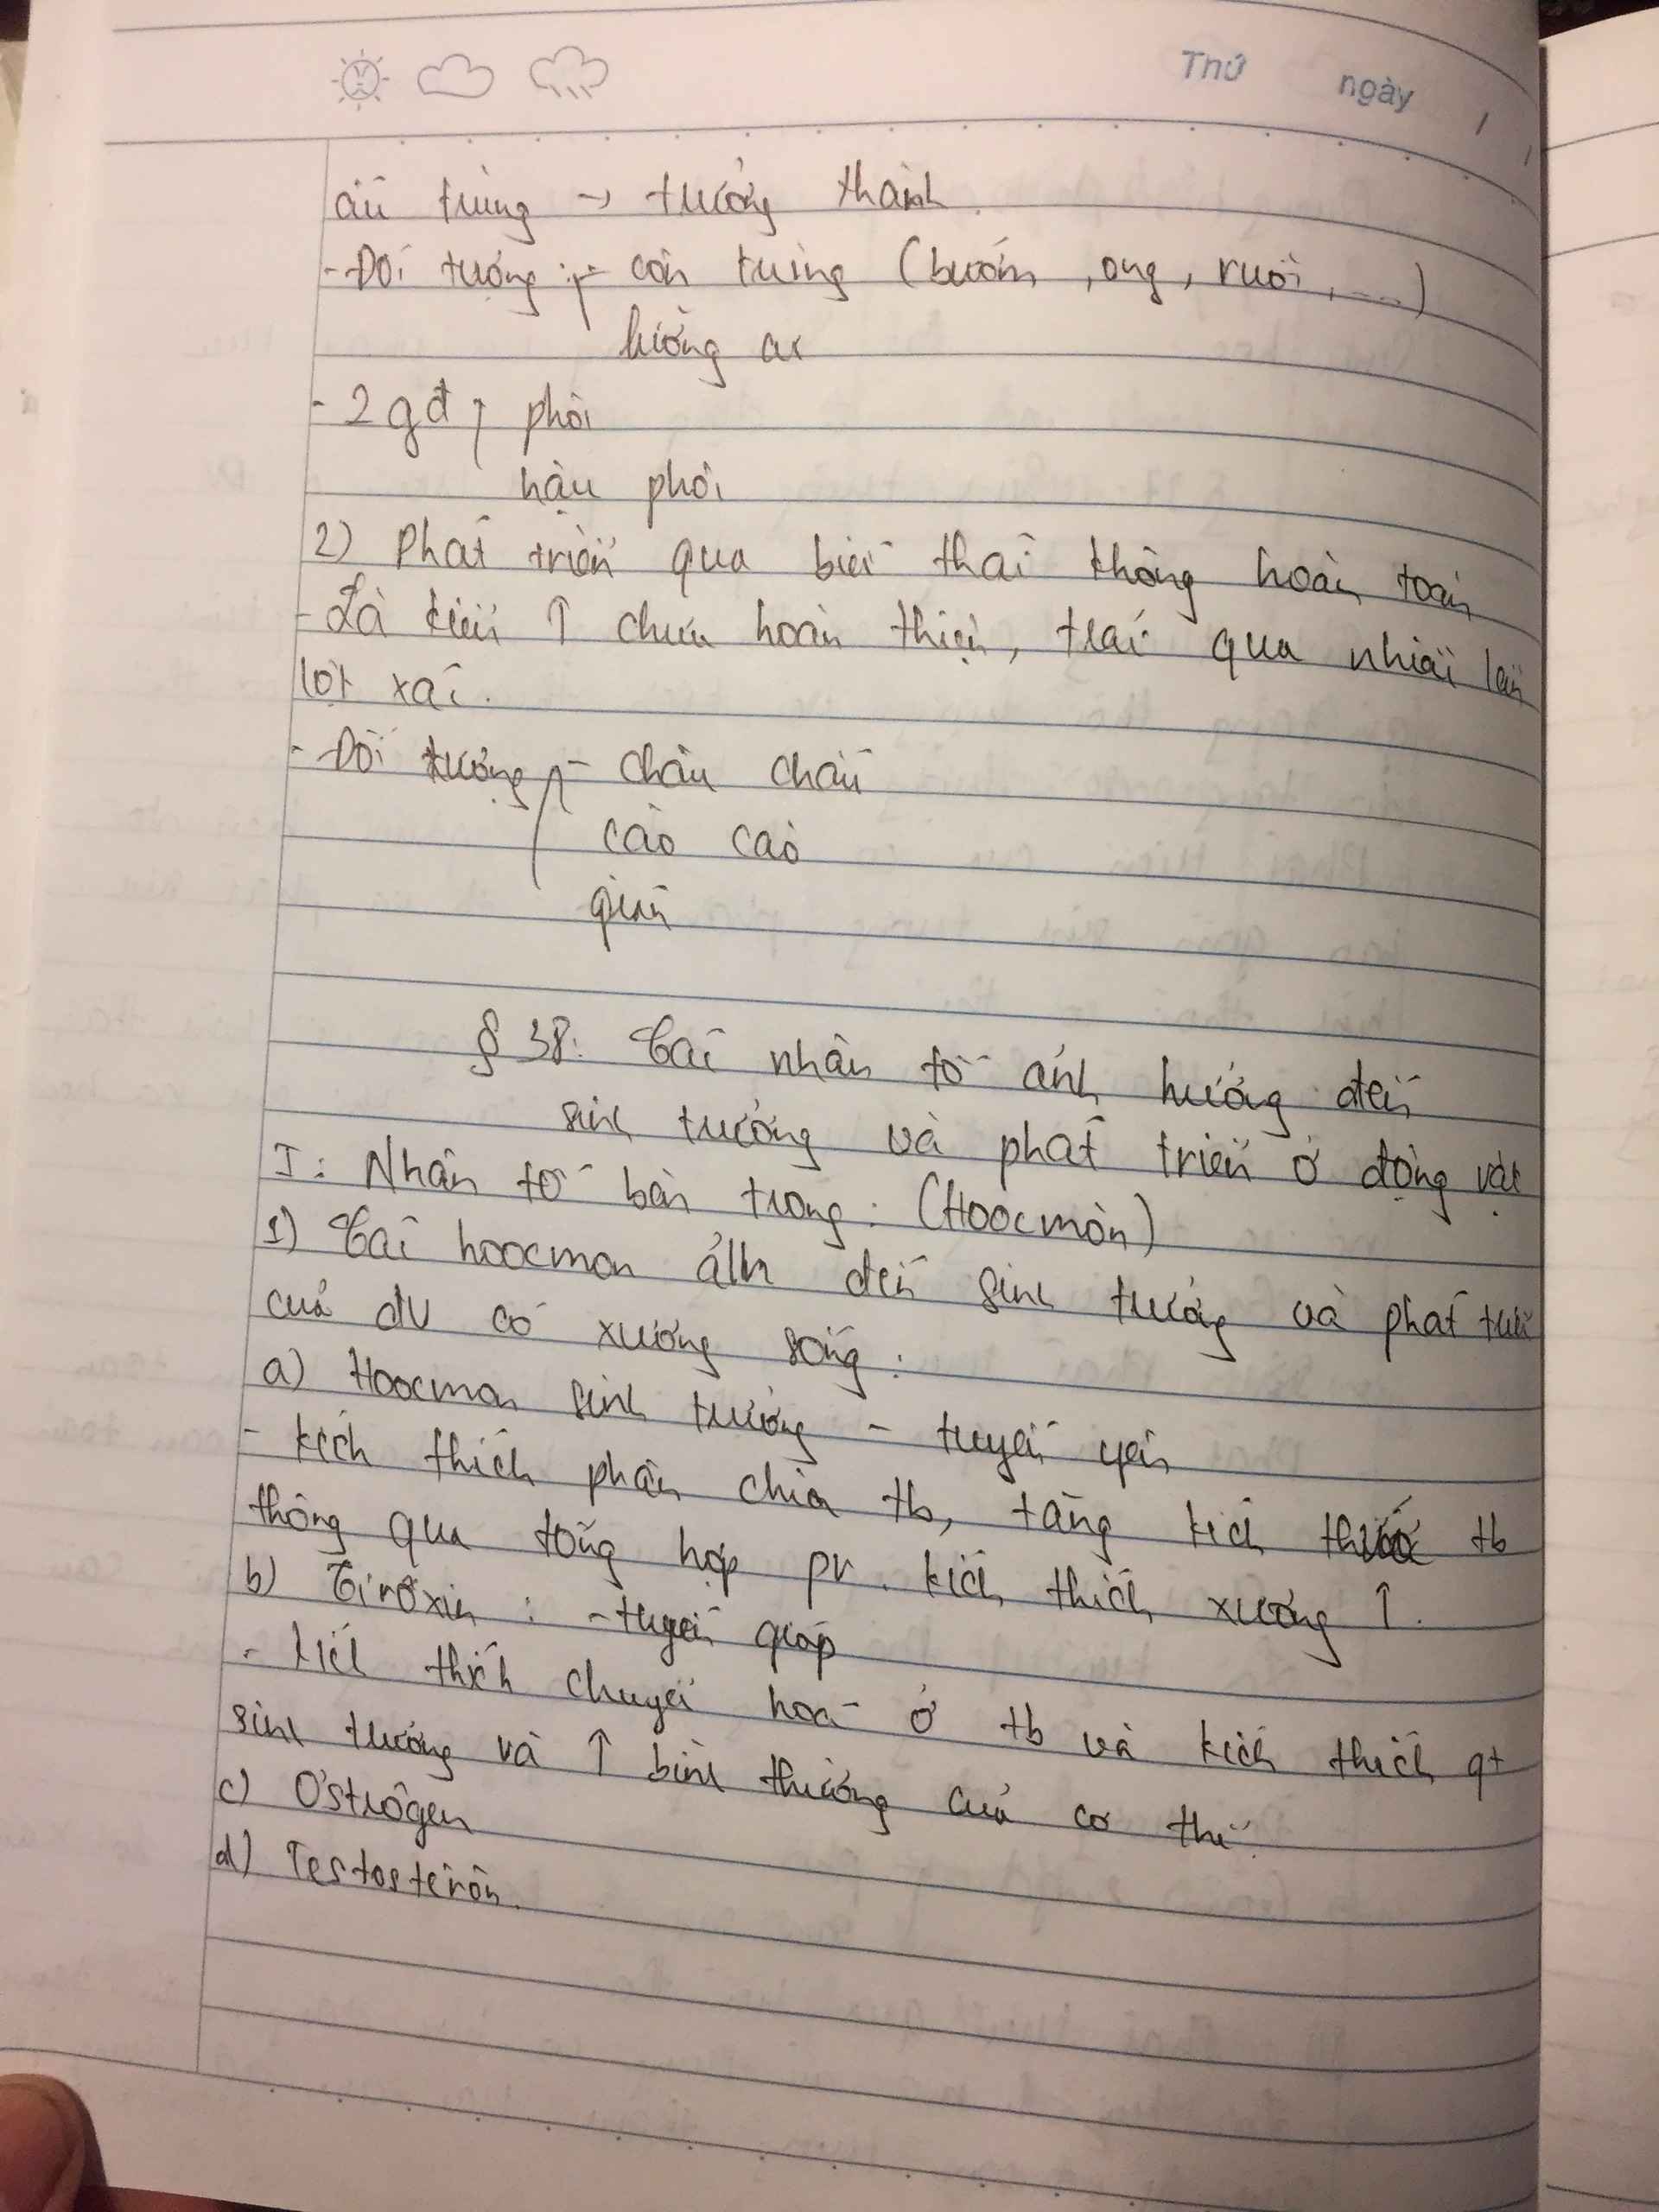 Thứ ngày /
/
ấu trùng → trưởng thành.
- Đối tượng: - côn trùng (bướm, ong, ruồi, ...)
lưỡng cư
- 2 gđ phôi
hậu phôi
2) Phát triển qua biến thái không hoàn toàn
- Là kiểu ↑ chưa hoàn thiện, trải qua nhiều lần
lột xác.
- Đối tượng - châu chấu
cào cào
gián
§ 38: Các nhân tố ảnh hưởng đến
sinh trưởng và phát triển ở động vật
I: Nhân tố bên trong: (Hoocmôn)
1) Các hoocmon ảlh đến sinh trưởng và phát triển
của đv có xương sống:
a) Hoocmon sinh trưởng - tuyến yên
- kích thích phân chia tb, tăng kích thước tb
thông qua tổng hợp pr. kích thích xương ↑.
b) Tirôxin: - tuyến giáp
- kích thích chuyển hoá ở tb và kích thích qt
sinh trưởng và ↑ bình thường của cơ thể.
c) Ơstrôgen
d) Testosterôn.